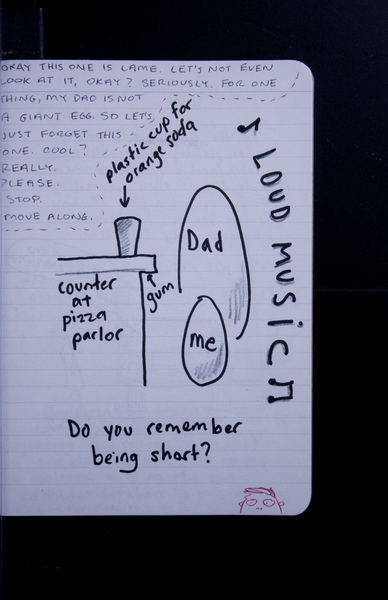 OKAY THIS ONE IS LAME. LET'S NOT EVEN
LOOK AT IT, OKAY? SERIOUSLY. FOR ONE
THING, MY DAD IS NOT
A GIANT EGG. SO LET'S
JUST FORGET THIS
ONE. COOL?
REALLY.
PLEASE.
STOP.
MOVE ALONG.
plastic cup for
orange soda
LOUD MUSIC
Dad
counter
at
pizza
parlor
gum
me
Do you remember
being short?